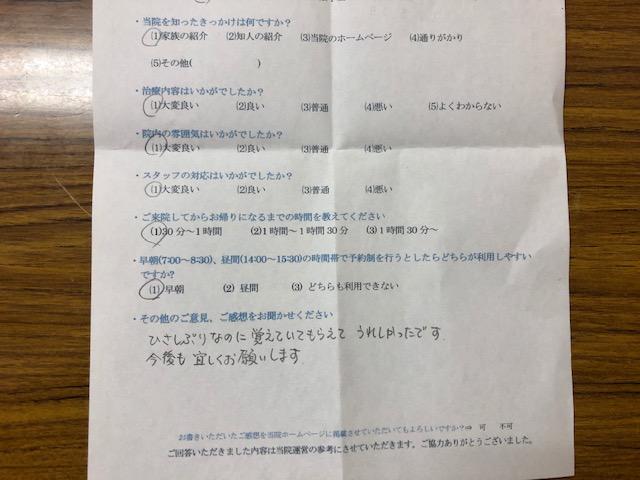 ・当院を知ったきっかけは何ですか?
(1)家族の紹介 (2)知人の紹介 (3)当院のホームページ (4)通りがかり
(5)その他( )
・治療内容はいかがでしたか?
(1)大変良い (2)良い (3)普通 (4)悪い (5)よくわからない
・院内の雰囲気はいかがでしたか?
(1)大変良い (2)良い (3)普通 (4)悪い
・スタッフの対応はいかがでしたか?
(1)大変良い (2)良い (3)普通 (4)悪い
・ご来院してからお帰りになるまでの時間を教えてください
(1)30分〜1時間 (2)1時間〜1時間30分 (3)1時間30分〜
・早朝(7:00〜8:30)、昼間(14:00〜15:30)の時間帯で予約制を行うとしたらどちらが利用しやすい
ですか?
(1) 早朝 (2) 昼間 (3) どちらも利用できない
・その他のご意見、ご感想をお聞かせください
ひさしぶりなのに覚えていてもらえて うれしかったです.
今後も 宜しくお願いします.
お書きいただいたご感想を当院ホームページに掲載させていただいてもよろしいですか?⇒ 可 不可
ご回答いただきました内容は当院運営の参考にさせていただきます。ご協力ありがとうございました。